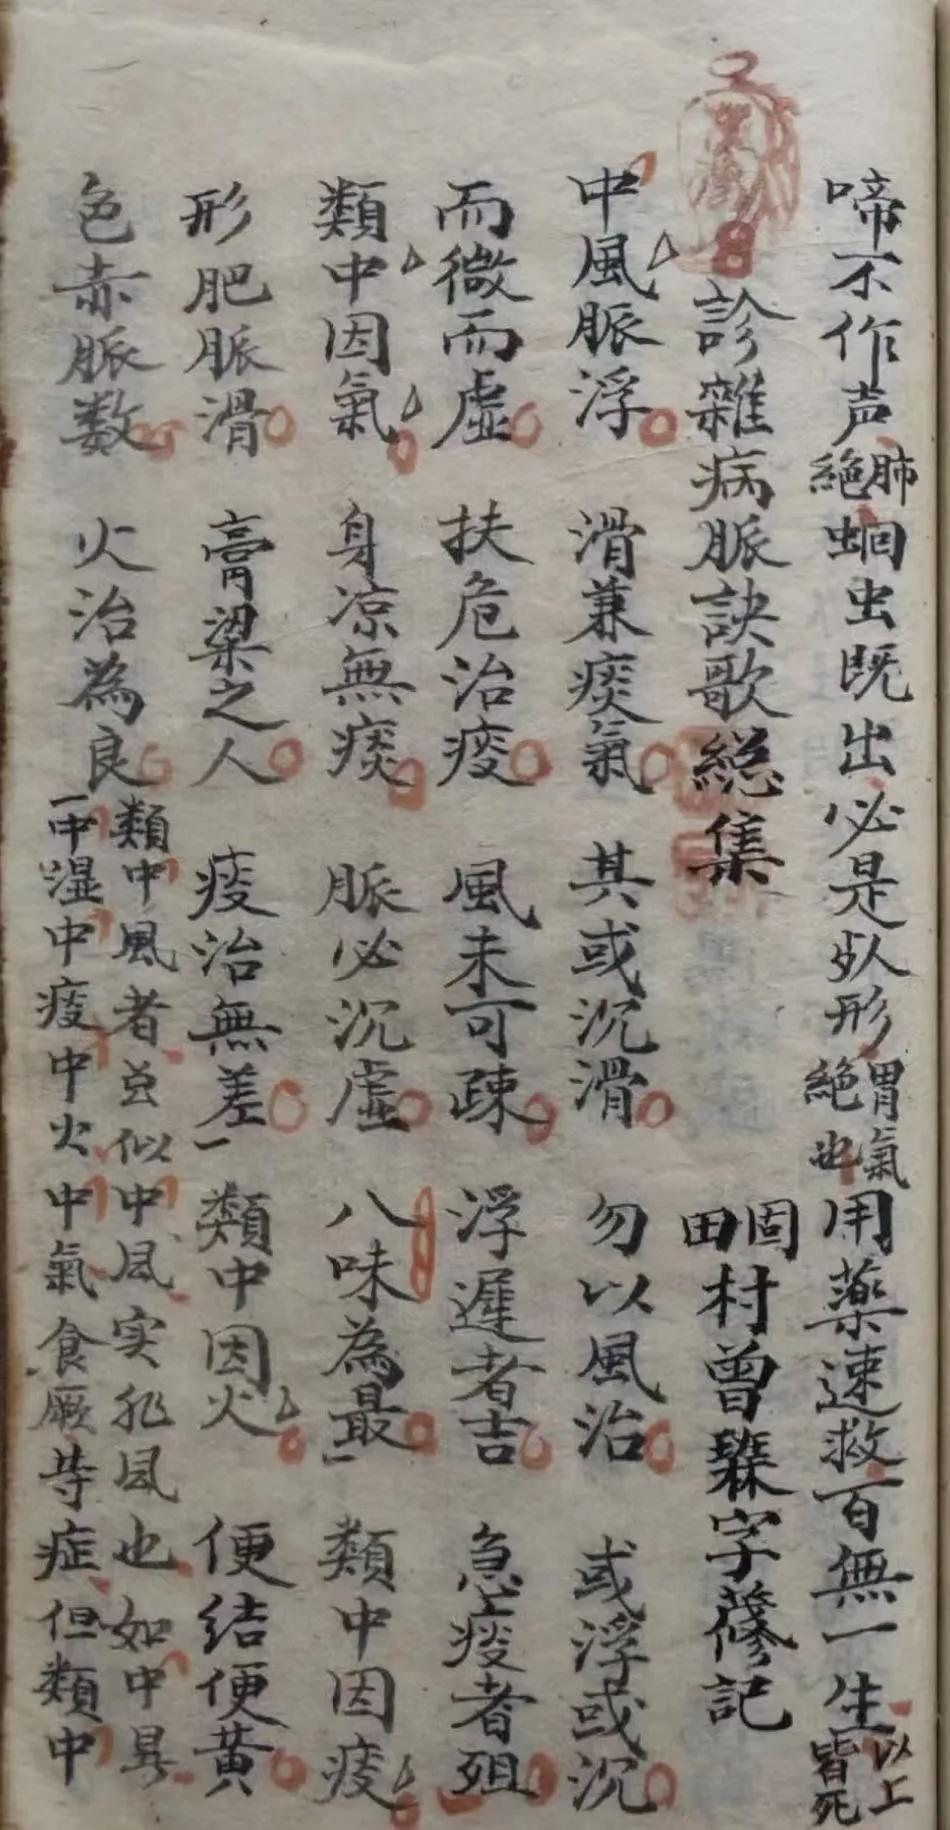 啼不作声肺絕蛔虫既出必是死人形胃氣絕也用藥速救百無一生以上皆死
診雜病脈訣歌総集 固田村曾字修記
中風脈浮 滑兼痰氣 其或沉滑 勿以風治 或浮或沉
而微而虛 扶危治痰 風未可疎 浮遲者吉 急疾者殂
類中因氣 身凉無痰 脈必沉虛 八味為最 類中因痰
形肥脈滑 膏粱之人 痰治無差 類中因火 便結便黃
色赤脈数 火治為良
類中風者並似中風实非風也如中暑
中湿中痰中火中氣食厥等症但類中